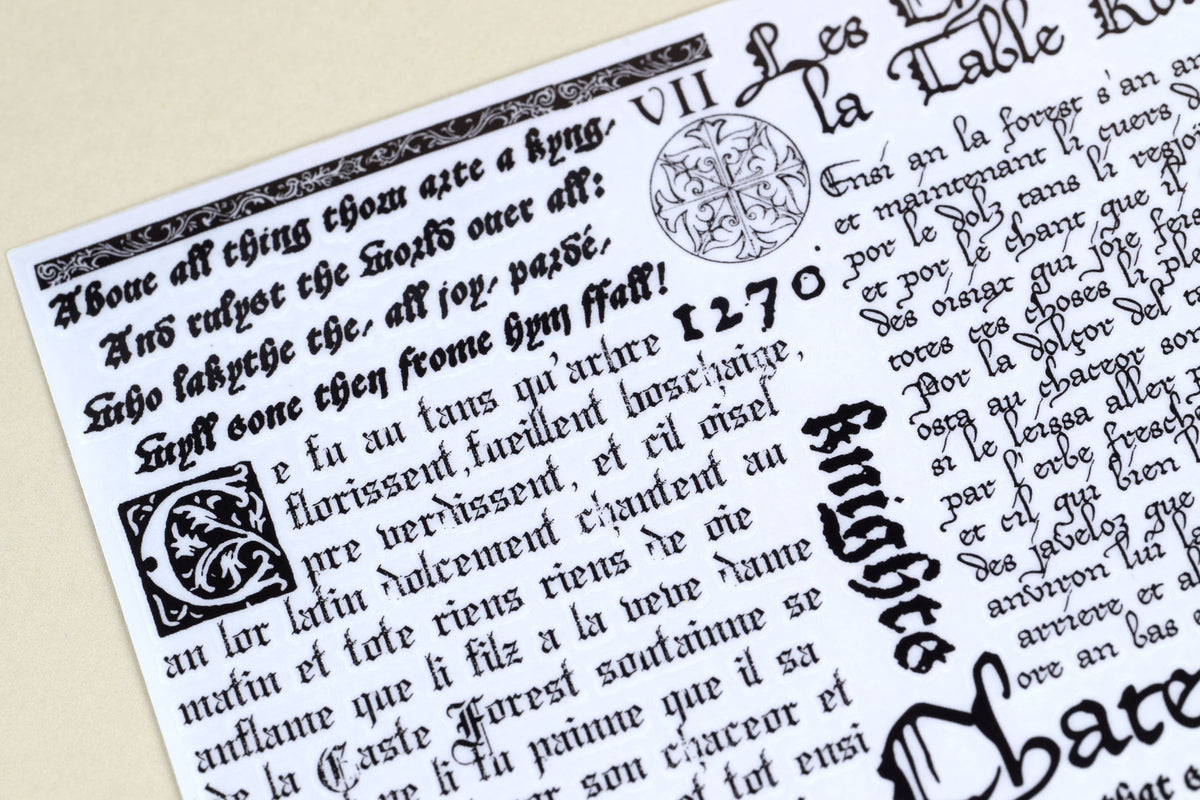 Aboue all thing thow arte a kyng,
And rulyst the world ouer all:
Who lakythe the, all joy, pardé,
Wyll sone then frome hym ffall!
VII
1270
Ce fu au tans qu'arbre
florissent, fueillent boschaige,
pre verdissent, et cil oisel
an lor latin dolcement chantent au
matin et tote riens riens de oie
anflame que li filz a la veve dame
de la Gaste Forest soutainne se
ne li fu painne que il sa
son chaceor et
et tot ensi
Knighte
Les
la Table
Ensi an la forest s'an
et maintenant li cuers
por le dolz tans li
et por le chant que il
des oisiax qui joie
totes ces choses li
Por la dolçor del
osta au chaceor
si le leissa aller
par l'erbe
et cil qui bien
des javeloz que
anviron lui
arriere et
ore an bas